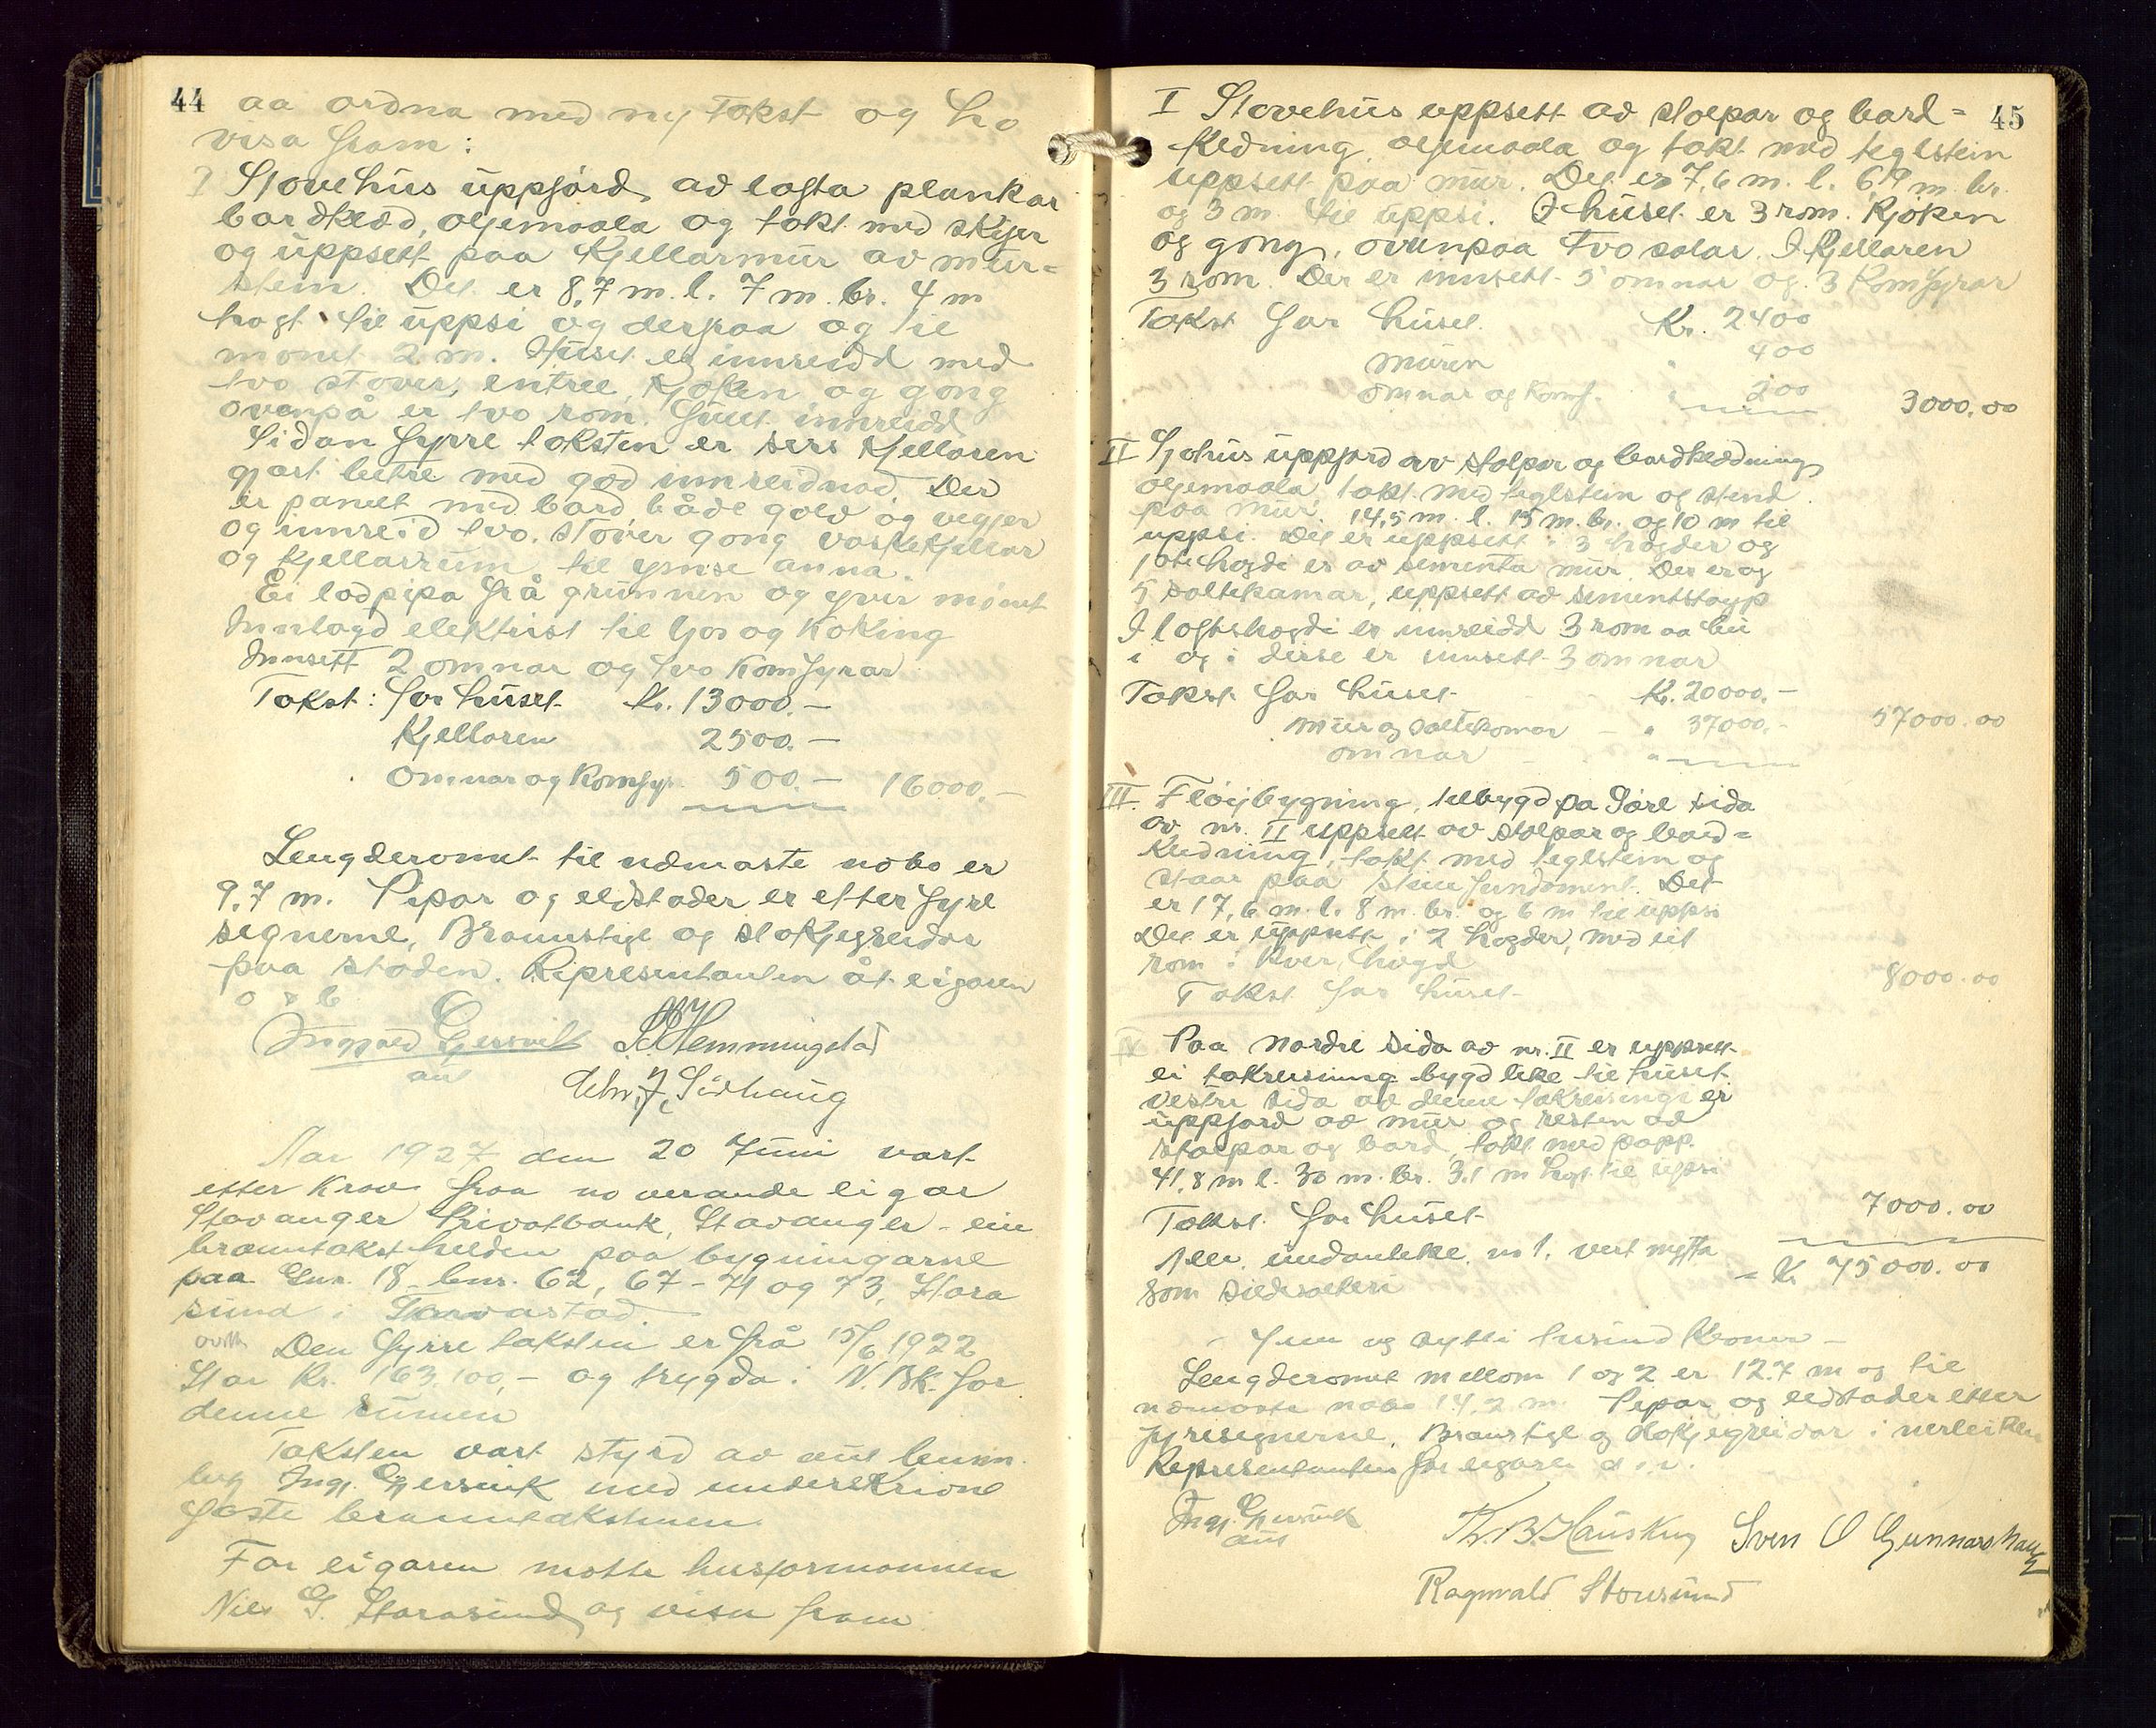 44
aa ordna med ny takst og ho
visa fram:
I Stovehus uppførd av lafta plankar
bordklæd, oljemaala og tekt med skifer
og uppsett paa Kjellarmur av mur=
stein. Det er 8,7 m. l. 7 m. br. 4 m
høgt til uppsi og derfraa og til
mønet 2 m. Huset er innreidd med
tvo stover, entree, Kjøken og gong
ovanpå er tvo rom fullt innreidd
Sidan fyrre taksten er sers Kjellaren
gjort betre med god innreidnad. Der
er panelt med bord både golv og vegjer
og innreid tvo stover gong vaskekjellar
og Kjellarrum til ymse anna.
Ei lodpipa frå grunnen og yver mønet
Innlagd elektrisk til ljos og Koking
Innsett 2 omnar og tvo Komfyrar
Takst: for huset Kr. 13000.–
Kjellaren 2500.–
Omnar og Komfyr 500.– 16000.–
Lengderomet til næmaste nabo er
9,7 m. Pipar og eldstader er etter fyre
segnerne, Brannstige og sløkjegreidor
paa staden. Representanten åt eigaren
o s b
Ingvald Gjersvik
aut
S. Hemmingstad
Chr. J. Sirhaug
Aar 1927 den 20 Juni vart
etter Krav fraa noverande eigar
Stavanger Privatbank, Stavanger – ein
branntakst helden paa bygningarne
paa Gnr. 18 bnr. 62, 67–71 og 73, Stora
sund i Torvastad.
Den fyrre taksten er frå 15/6 1922
Stor Kr. 163.100,– og trygda i N. Bk. for
denne sumen
Taksten vart styrd av aut lensm.
Ingv. Gjersvik med underskrivne
faste branntakstmenn.
For eigaren møtte husformannen
Nils G. Storasund og visu fram
45
I Stovehus uppsett av stolpar og bord=
Kledning oljemaala og tekt med teglstein
uppsett paa mur. Det er 7,6 m. l. 6,9 m. br.
og 3 m. til uppsi. I huset er 3 rom. Kjøken
og gong, ovanpaa tvo salar. I Kjellaren
3 rom. Der er innsett 5 omnar og 3 Komfyrar
Takst for huset Kr. 2400
muren " 400
omnar og Komf. " 200 3000.00
II Sjøhus uppførd av stolpar og bordkledning
oljemaala, tekt med teglstein og stend
paa mur 14,5 m. l. 15 m. br. og 10 m til
uppsi. Det er uppsett i 3 høgder og
1ste høgdi er av sementa mur. Der er og
5 saltekamar, uppsett av sementstøyp
I loftshøgdi er innreidd 3 rom aa bu
i og i disse er innsett 3 omnar
Takst for huset Kr. 20000.–
mur og saltekamar – " 37000.– 57000.00
omnar "
III. Fløibygning, tilbygd pa Søre sida
av nr. II uppsett av stolpar og bord=
Kledning, tekt med teglstein og
staar paa stein fundament. Det
er 17,6 m. l. 8 m. br. og 6 m til uppsi
Det er uppsett i 2 høgder, med eit
rom i Kver høgd
Takst for huset 8000.00
VI Paa nordre sida av nr. II er uppsett
ei takreisning bygd like til huset.
Vestre sida av denne takreisningi er
uppførd av mur og resten av
stolpar og bord, tekt med papp.
41,8 m l. 30 m. br. 3.1 m høgt til uppsi
Takst for huset 7000.00
Alle, undanteke nr 1. vert nytta = Kr 75000.00
som sildesalteri
Fem og sytti tusund Kroner –
Lengderomet mellom 1 og 2 er 12.7 m og til
næmaste nabo 14,2 m. Pipar og eldstader etter
fyresegnerne. Brannstige og sløkjegreidor i
Representanten for eigaren
Ingv. Gjersvik
aut
Th. B. Hauskug
Sven O Gunnarshaug
Ragnvald Storesund